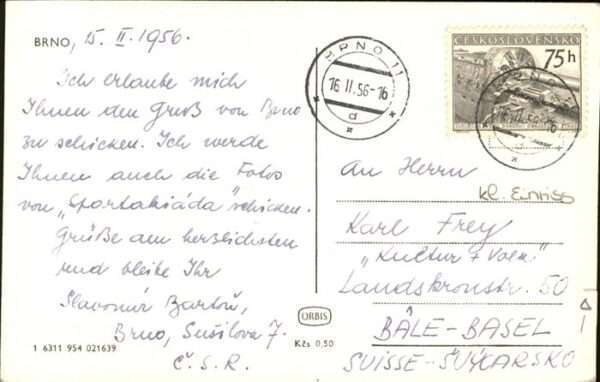 BRNO, 15. II. 1956.
Ich erlaube mich
Ihnen den Gruß von Brno
zu schicken. Ich werde
Ihnen auch die Fotos
von „Spartakiáda" schicken.
Grüße am herzlichsten
und bleibe Ihr
Slavomír Bartoň,
Brno, Sušilova 7.
Č. S. R.
1 6311 954 021639
ORBIS
Kčs 0,50
BRNO 11
16 II. 56-16
d
ČESKOSLOVENSKO
75h
An Herrn
kl. Einriss
Karl Frey
„Kultur +
Landskronstr. 50
BÂLE-BASEL
SUISSE-ŠVÝCARSKO